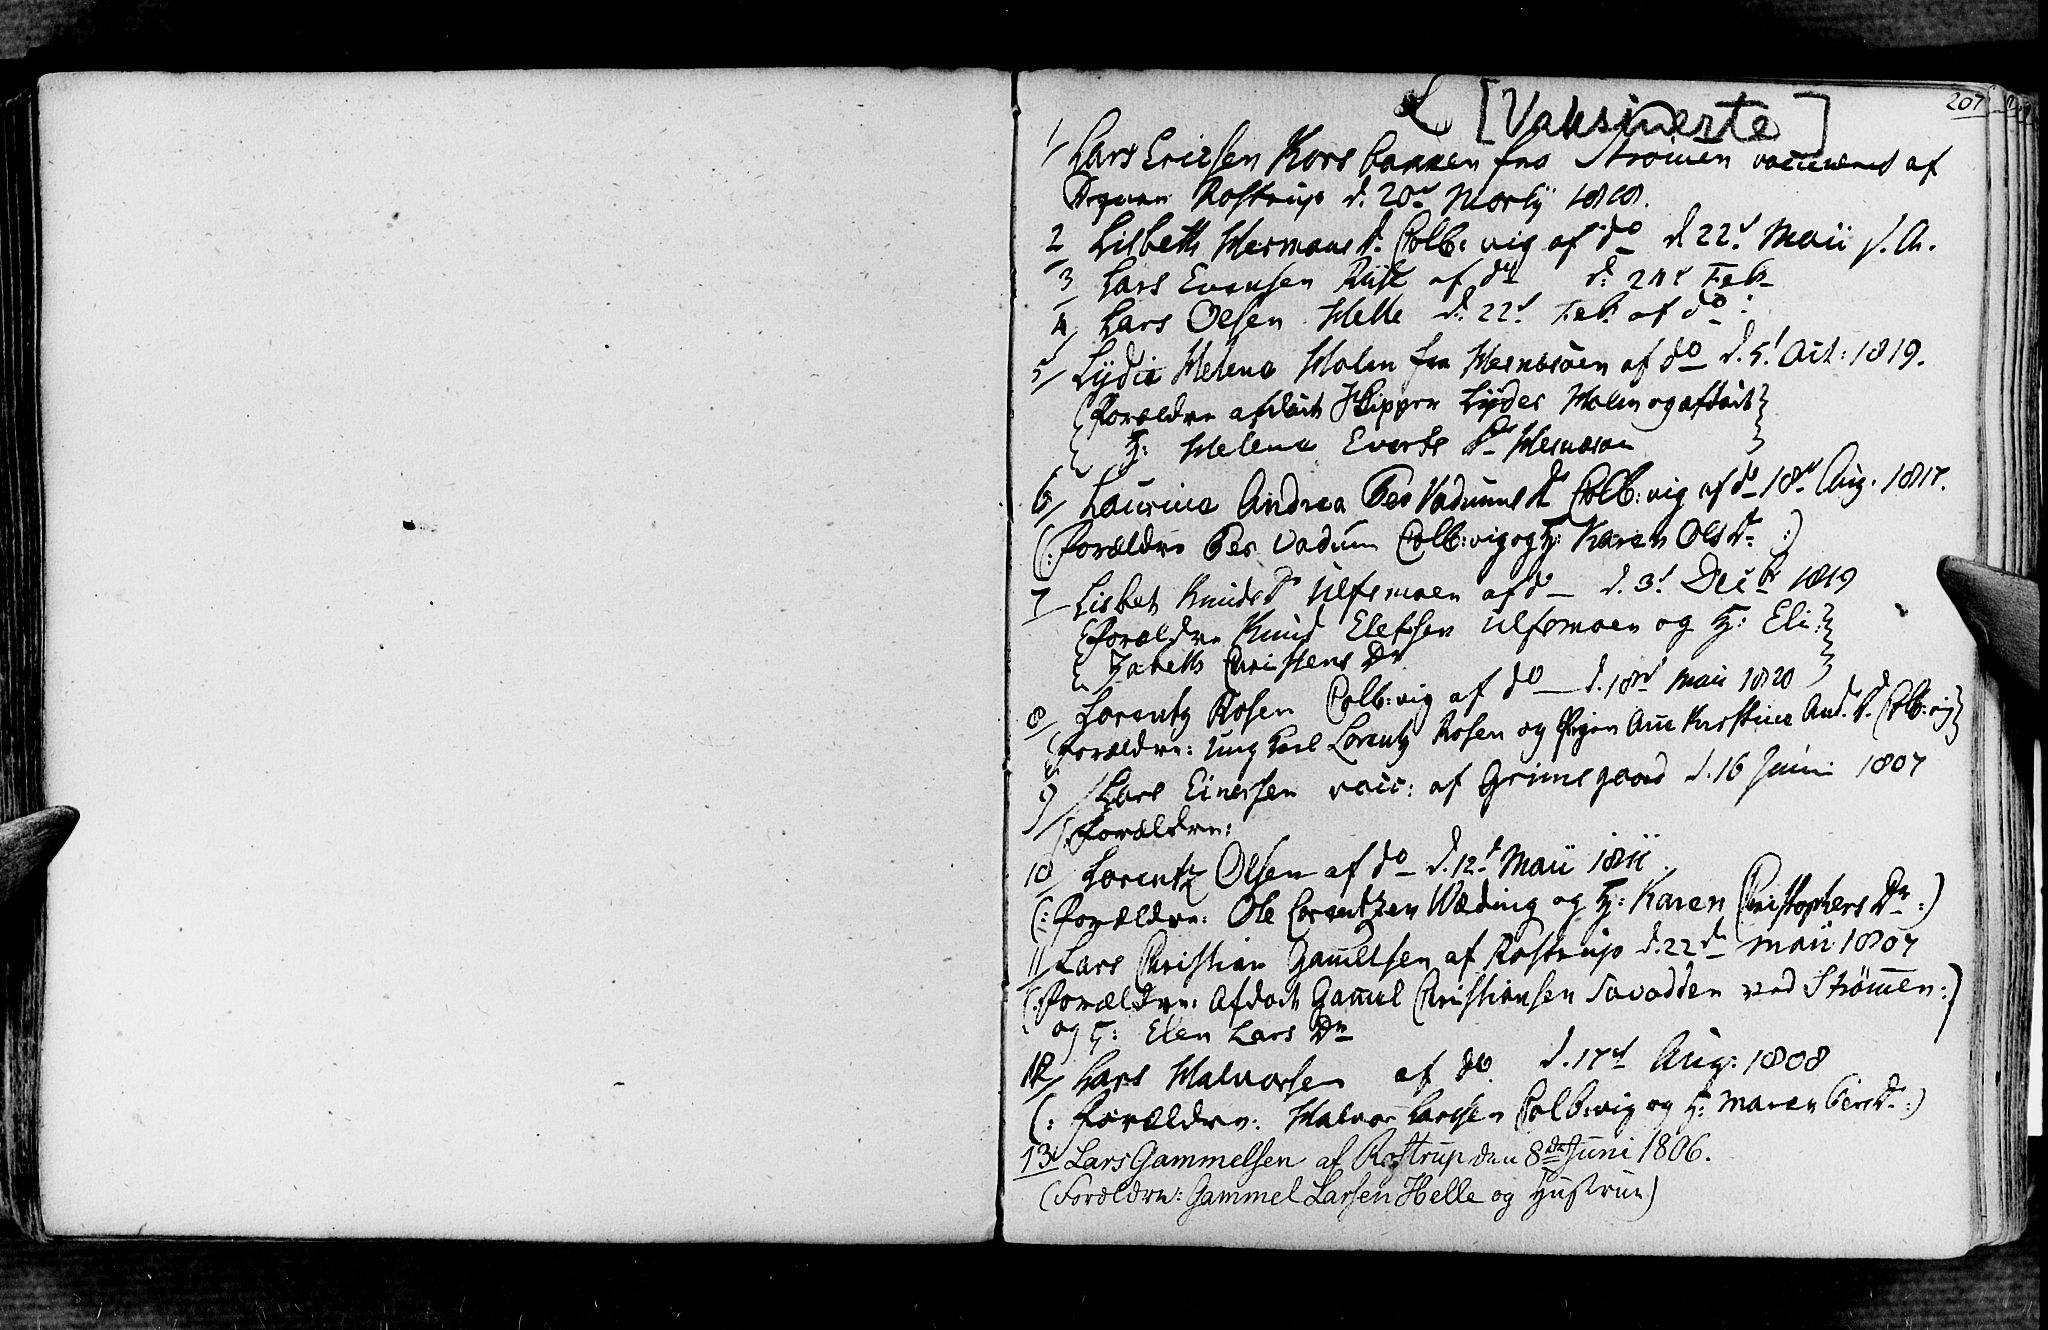 207
L [Vaksinerte]
1/ Lars Ericsen Korsbakken fra Strömen vaccineret af
Rostrup d. 20de Martij 1818.
2 Lisbeth Hermans Dr. Colb:vig af do d 22d Maii s. A.
3 Lars Evensen af do d. 24d Feb
4/ Lars Olsen Helle d. 22d Feb. af do:
5/ Lydia Helena Holm fra Hesnæsöen af do d. 5t Oct: 1819.
(Forældre afdöde Skipper Lyder Holm og afdöde
H: Helena Everts Dr Hesnæsöen
6/ Laurine Andrea Per Vadums Dr Colb:vig af do 18d Aug. 1817.
(: Forældre Per Vadum Colb:vig og H: Karen Ols Dr :)
7 Lisbet Knuds Dr Ulfsmoen af do d. 3d Decbr 1819
(Forældre Knud Elefsen Ulfsmoen og H: Eli:
zabeth Christens Dr
8/ Lorentz Rosen Colb:vig af do d. 18de Maii 1820
(Forældre: Ung Karl Lorentz Rosen og Pigen Ane Kirstine And. D. Colb:vig)
9/ Lars Einersen vacc: af Grimsgaard d. 16 Junii 1807
(Forældre:
10/ Lorentz Olsen af do d. 12d Maii 1811
(: Forældre: Ole Lorentzen Wæding og H: Karen Christophers Dr :)
11/ Lars Christian Gamelsen af Rostrup d. 22de Maii 1807
(: Forældre: Afdöde Gamel Christiansen Savodden ved Strömen :)
og H: Elen Lars Dr
12/ Lars Halvorsen af do. d. 17d Aug: 1808
(: Forældre: Halvor Larssen Colb:vig og H: Maren Pers Dr :)
13 Lars Gammelsen af Rostrup den 8de Juni 1806.
(Forældre: Gammel Larsen Helle og Hustrue)